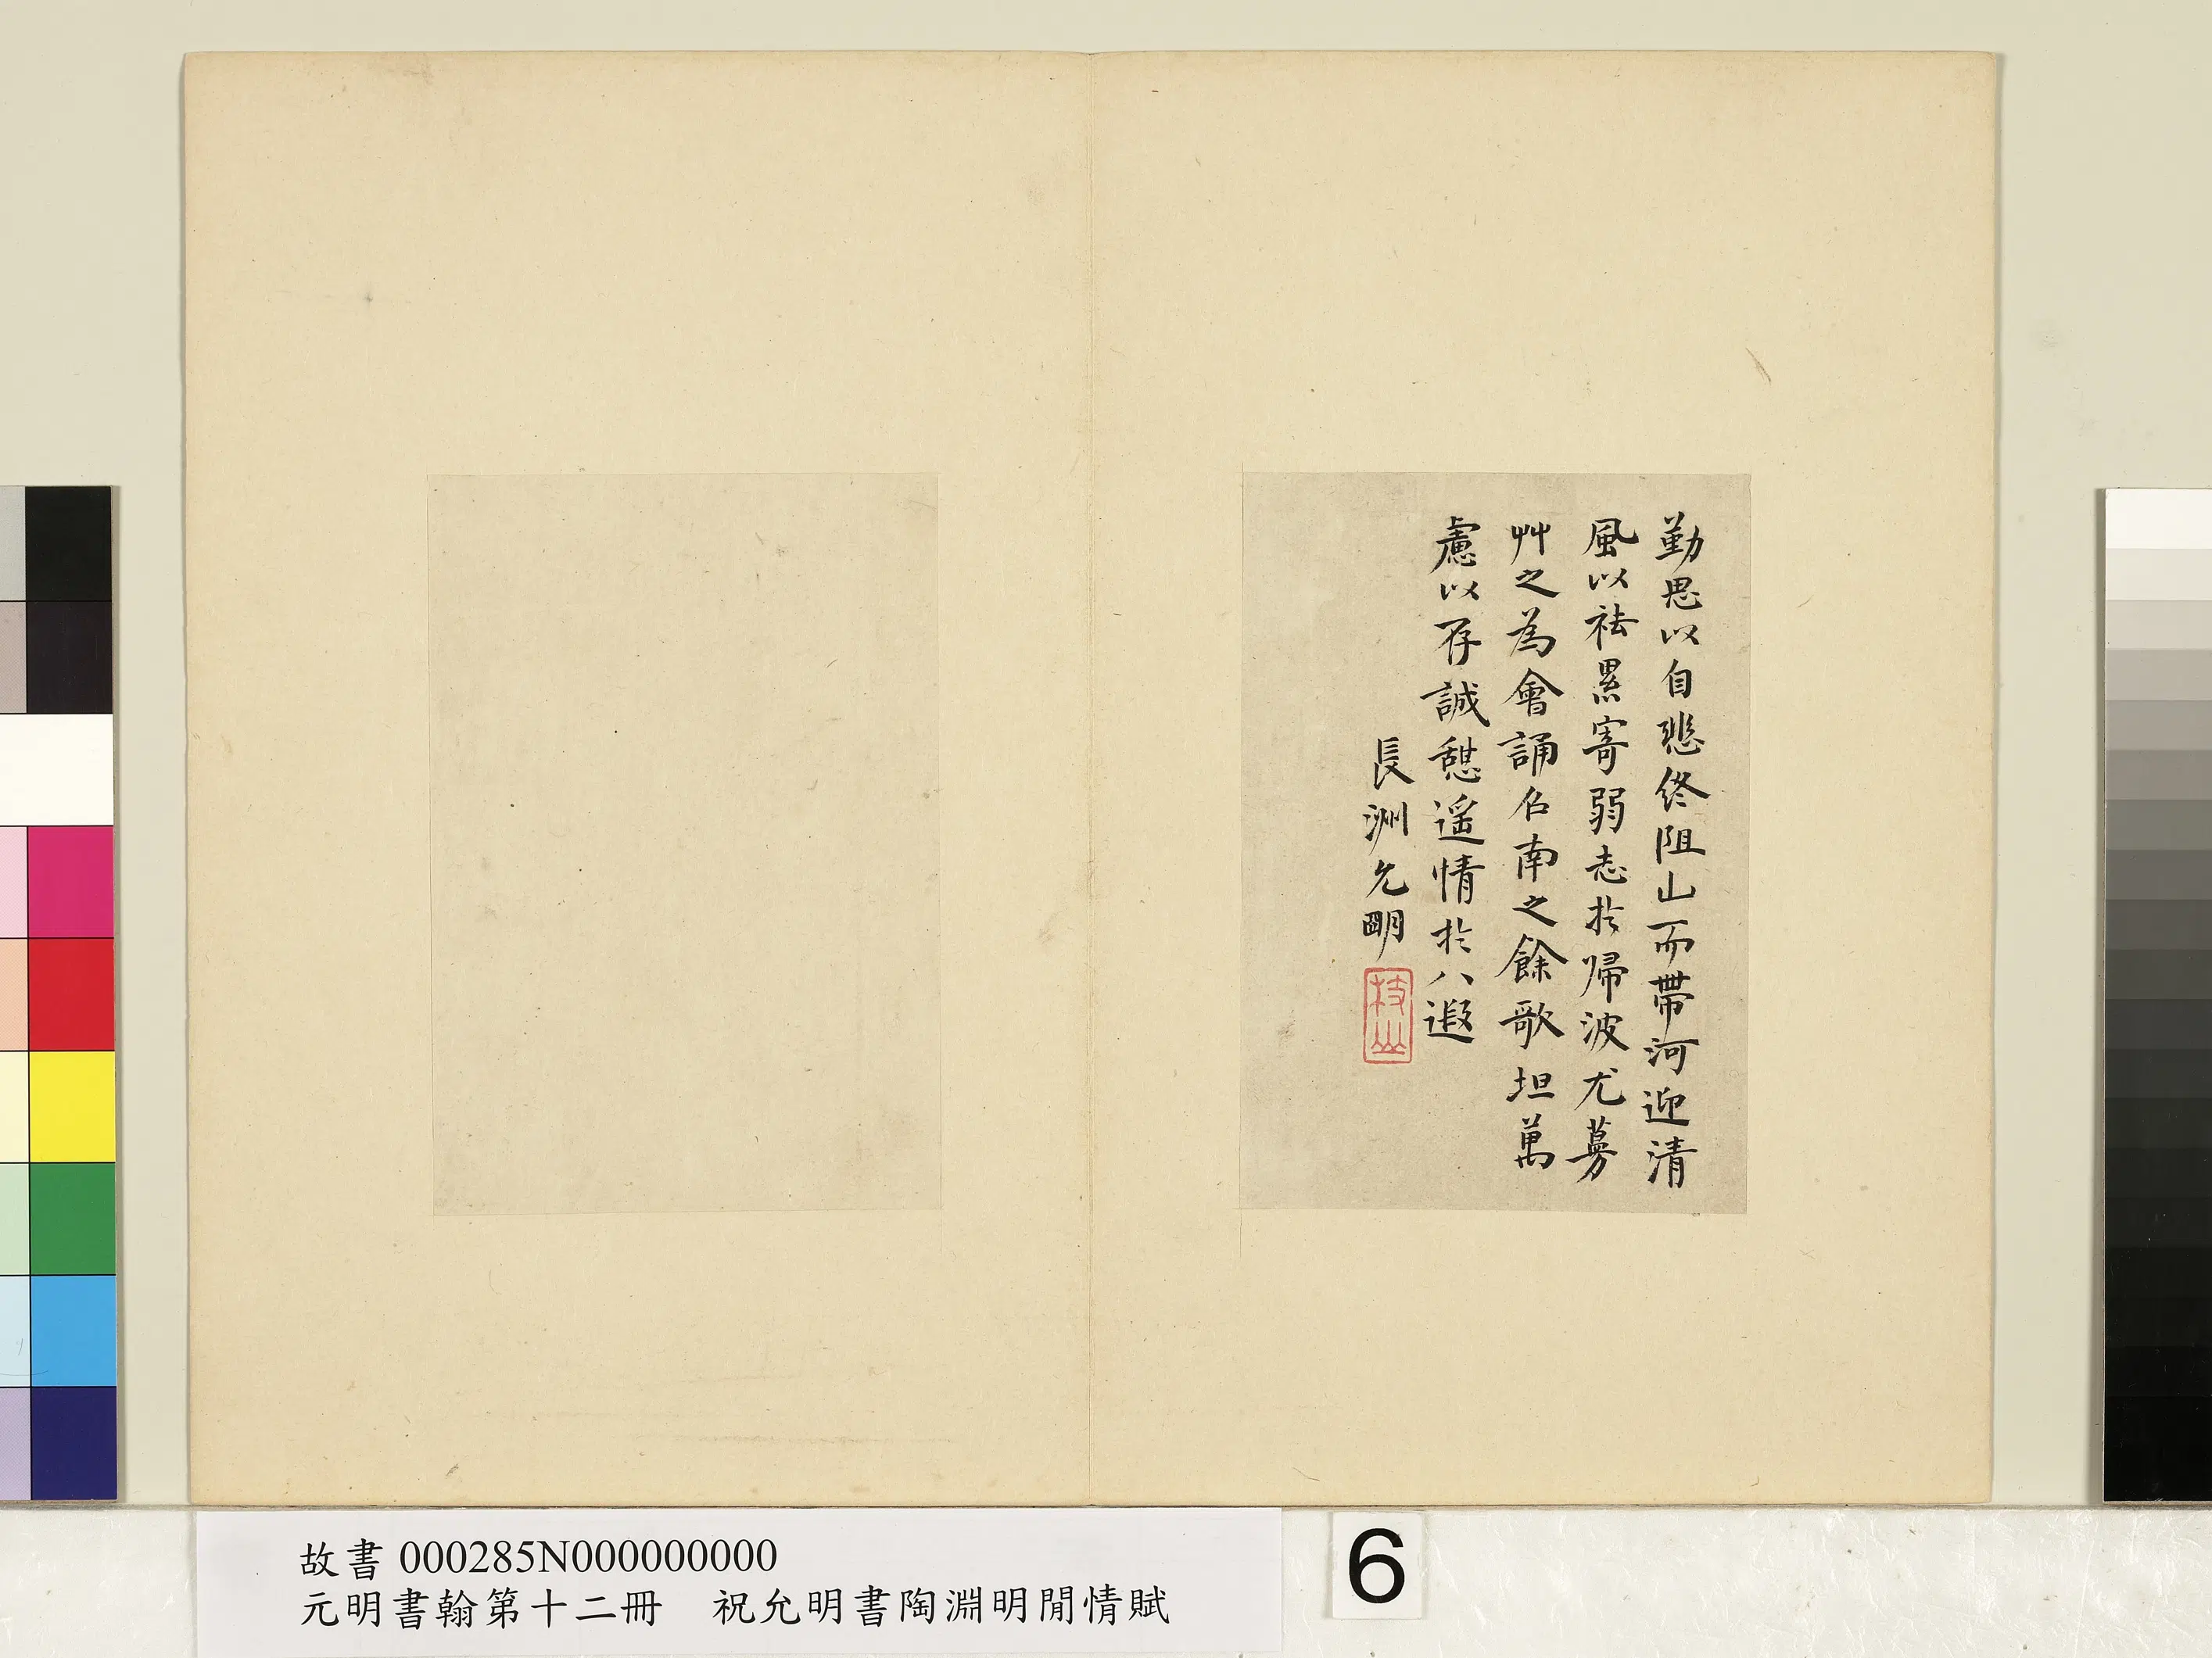 勤思以自悲終阻山而帶河迎清
風以祛累寄弱志於歸波尤蔓
艸之為會誦召南之餘歌坦萬
慮以存誠憇遥情於八遐
長洲允明
枝山
故書000285N000000000
元明書翰第十二冊　祝允明書陶淵明閒情賦
6